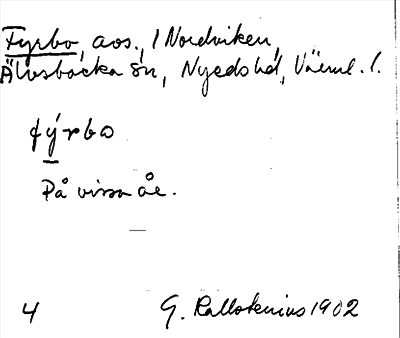 Fyrbo, aos., i Nordviken,
Älvsbacka sn, Nyeds hd, Värml. l.
fýrbo
På vissa åe.
4 G. Kallstenius 1902